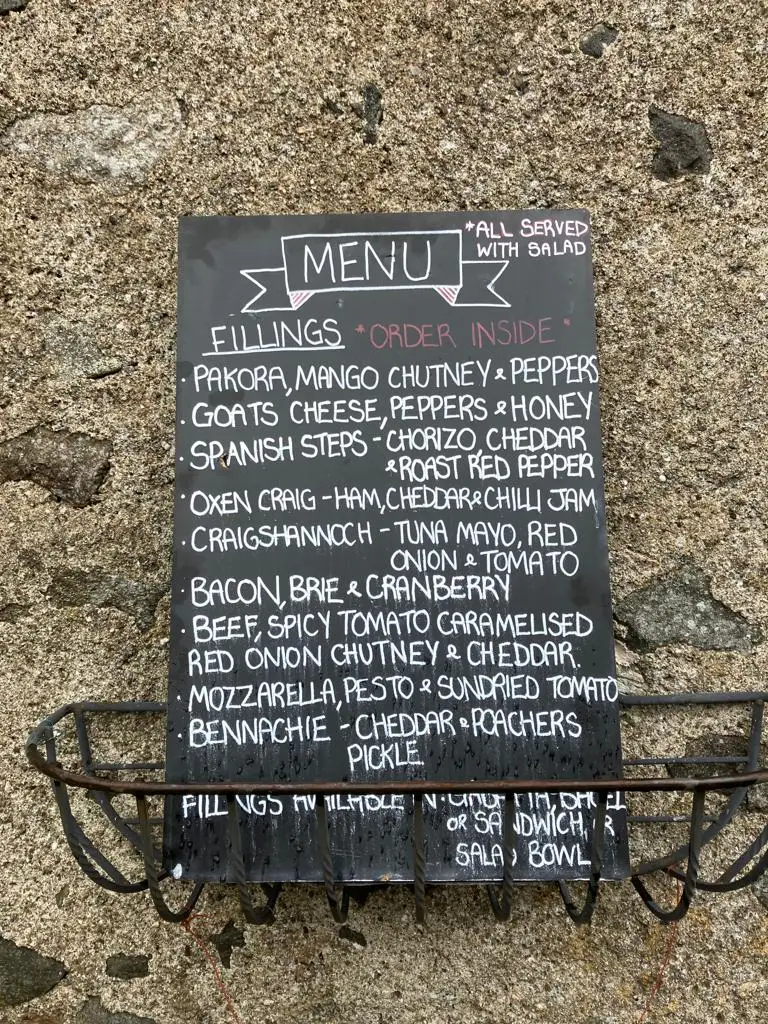 *ALL SERVED
WITH SALAD
MENU
FILLINGS *ORDER INSIDE*
· PAKORA, MANGO CHUTNEY & PEPPERS
· GOATS CHEESE, PEPPERS & HONEY
· SPANISH STEPS - CHORIZO, CHEDDAR
& ROAST RED PEPPER
· OXEN CRAIG - HAM, CHEDDAR & CHILLI JAM
· CRAIGSHANNOCH - TUNA MAYO, RED
ONION & TOMATO
· BACON, BRIE & CRANBERRY
· BEEF, SPICY TOMATO CARAMELISED
RED ONION CHUTNEY & CHEDDAR.
· MOZZARELLA, PESTO & SUNDRIED TOMATO
· BENNACHIE - CHEDDAR & POACHERS
PICKLE
FILLINGS AVAILABLE IN · CIABATTA, BAGEL
OR SANDWICH, OR
SALAD BOWL